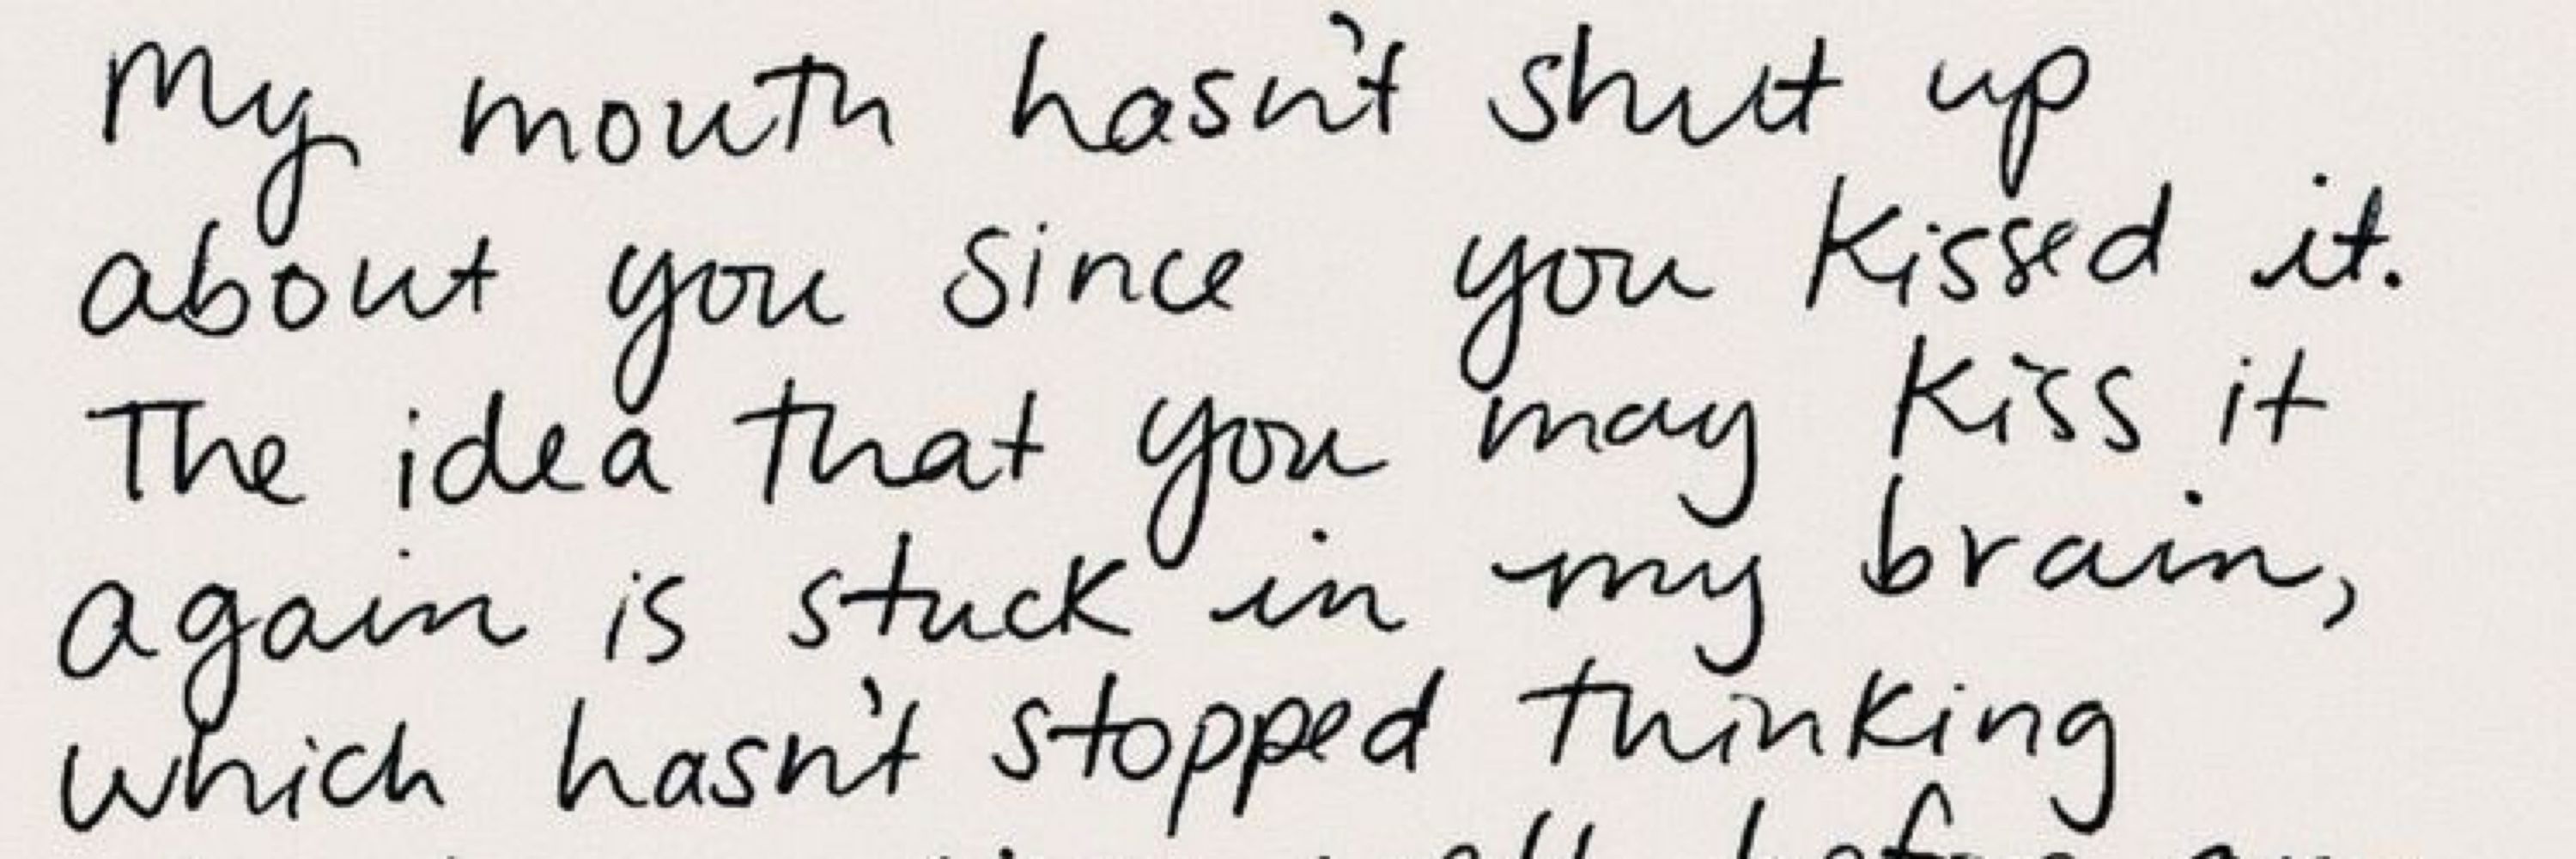 My mouth hasn't shut up
about you since you kissed it.
The idea that you may kiss it
again is stuck in my brain,
which hasn't stopped thinking